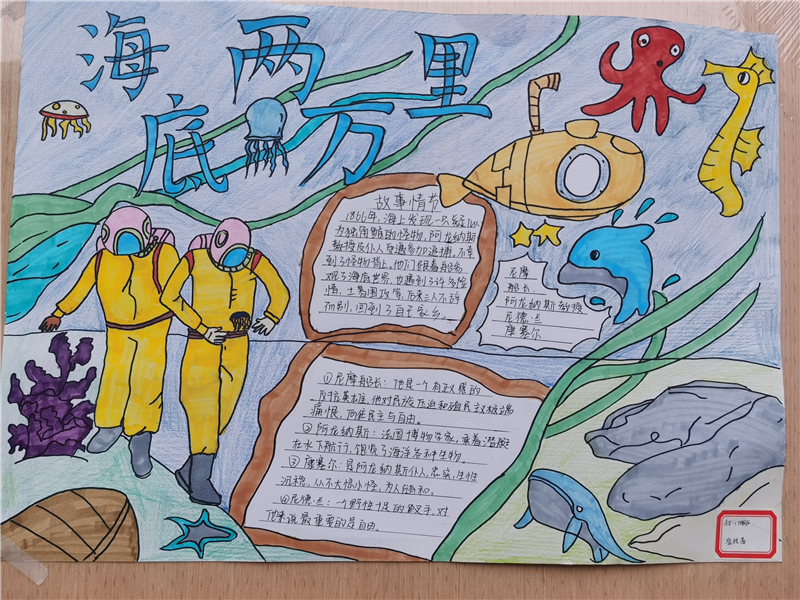 海底两万里
故事情节
1866年,海上发现一只
为独角鲸的怪物,阿龙纳斯
教授及仆人受邀参加追捕,不幸
到了怪物背上,他们跟着船
观了海底世界,也遇到了许多险
情,土著围攻等,后来三人不辞
而别,回到了自己家乡。
尼摩
船长
阿龙纳斯教授
尼德·兰
康塞尔
①尼摩船长:他是一个有正义感的
反抗英雄,他对民族压迫和殖民主义极端
痛恨,向往民主与自由。
②阿龙纳斯:法国博物学家,乘着潜艇
在水下航行,饱览了海洋各种生物
③康塞尔:是阿龙纳斯仆人,忠实,生性
沉稳,从不大惊小怪,为人随和。
④尼德·兰:一个野性十足的鱼叉手,对
他来说最重要的是自由。